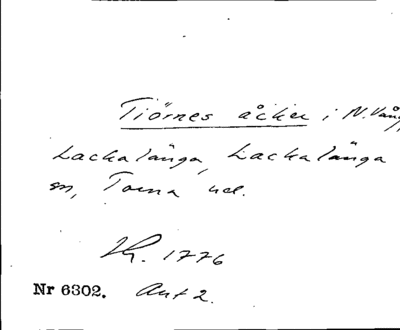 Tiörnes åcker i N. Vång,
Lackalänga, Lackalänga
sn, Torna hd.
1776
Nr 6302. Akt 2.